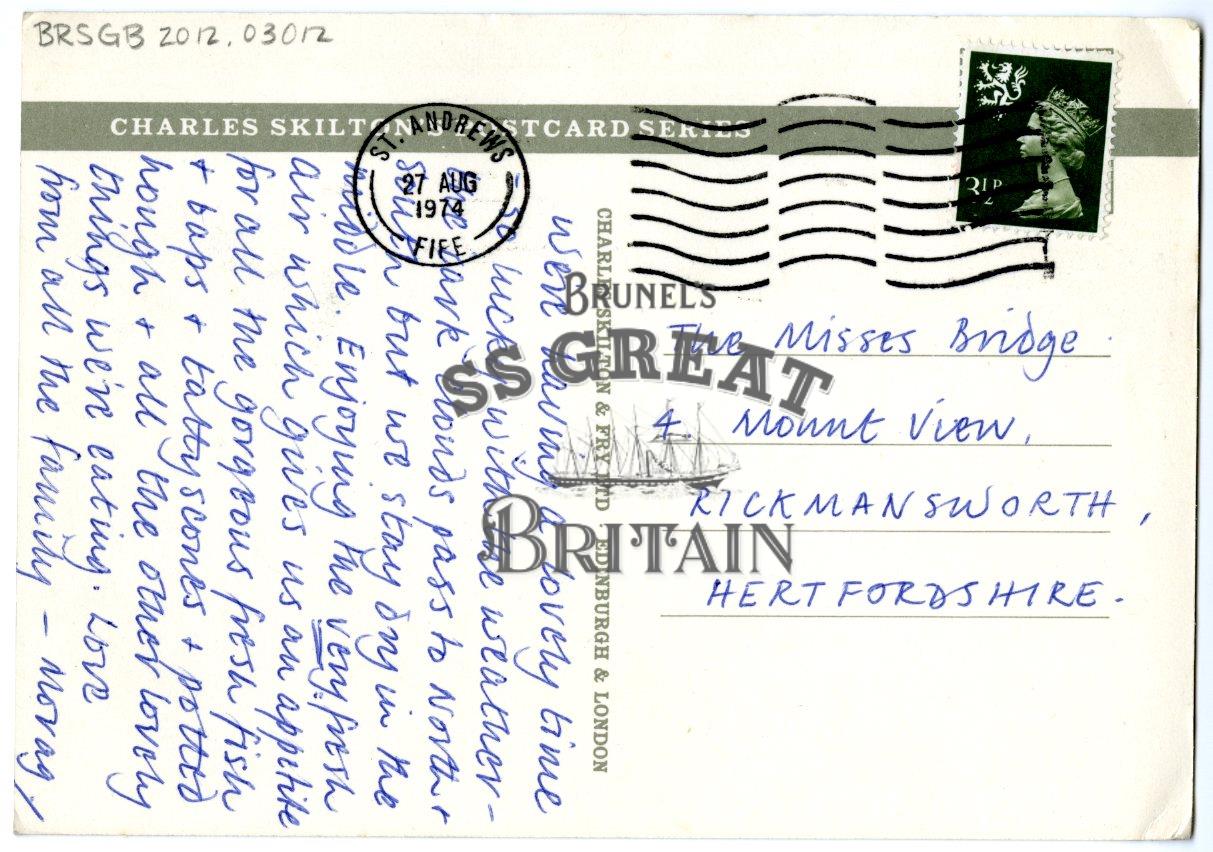 BRSGB 2012.03012
CHARLES SKILTON'S POSTCARD SERIES
ST. ANDREWS
27 AUG
1974
FIFE
3½P
We're having a lovely time
– so lucky with the weather –
the dark clouds pass to North +
South but we stay dry in the
middle. Enjoying the very fresh
air which gives us an appetite
for all the gorgeous fresh fish
+ baps + tattyscones + potted
hough + all the other lovely
things we're eating. Love
from all the family – Morag /
CHARLES SKILTON & FRY LTD EDINBURGH & LONDON
The Misses Bridge
4. Mount View,
RICKMANSWORTH,
HERTFORDSHIRE.
BRUNEL'S
SS GREAT
BRITAIN